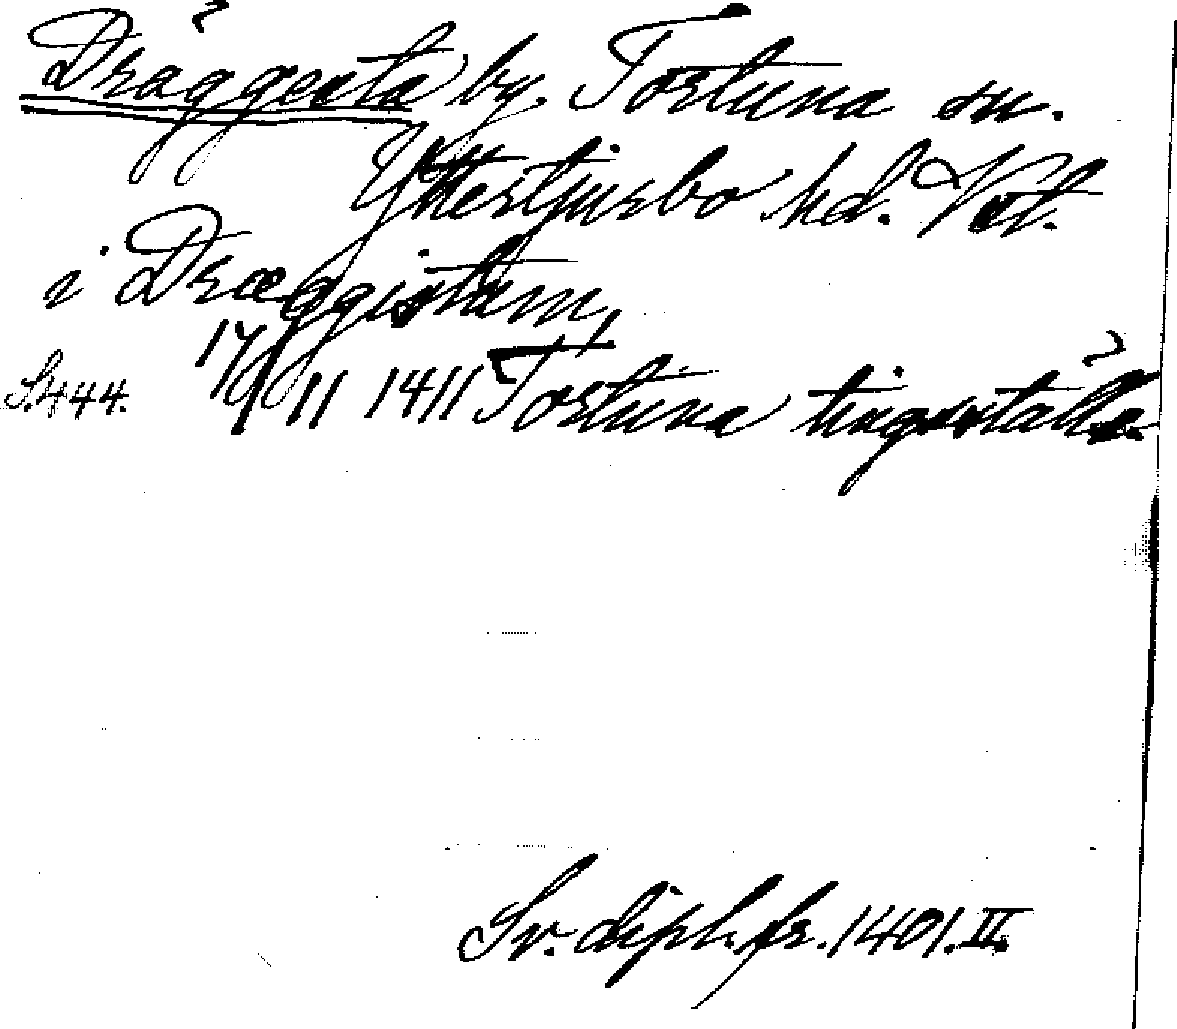 Dräggesta by. Tortuna sn.
Yttertjurbo hd. Vstl.
i Dræggistum,
S.444. 17/11 1411 Tortuna tingsställe.
Sv. dipl. fr. 1401. II.